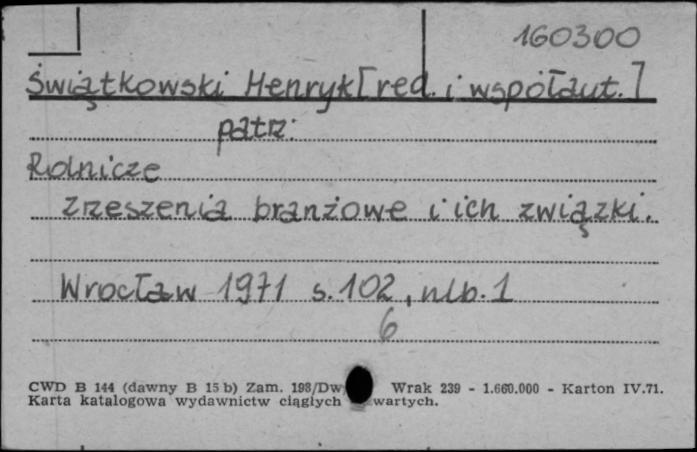 160300
Świątkowski Henryk [red. i współaut.]
patrz:
Rolnicze
zrzeszenia branżowe i ich związki.
Wrocław 1971 s. 102, nlb. 1
6
CWD B 144 (dawny B 15 b) Zam. 198/Dw Wrak 239 - 1.660.000 - Karton IV.71.
Karta katalogowa wydawnictw ciągłych wartych.